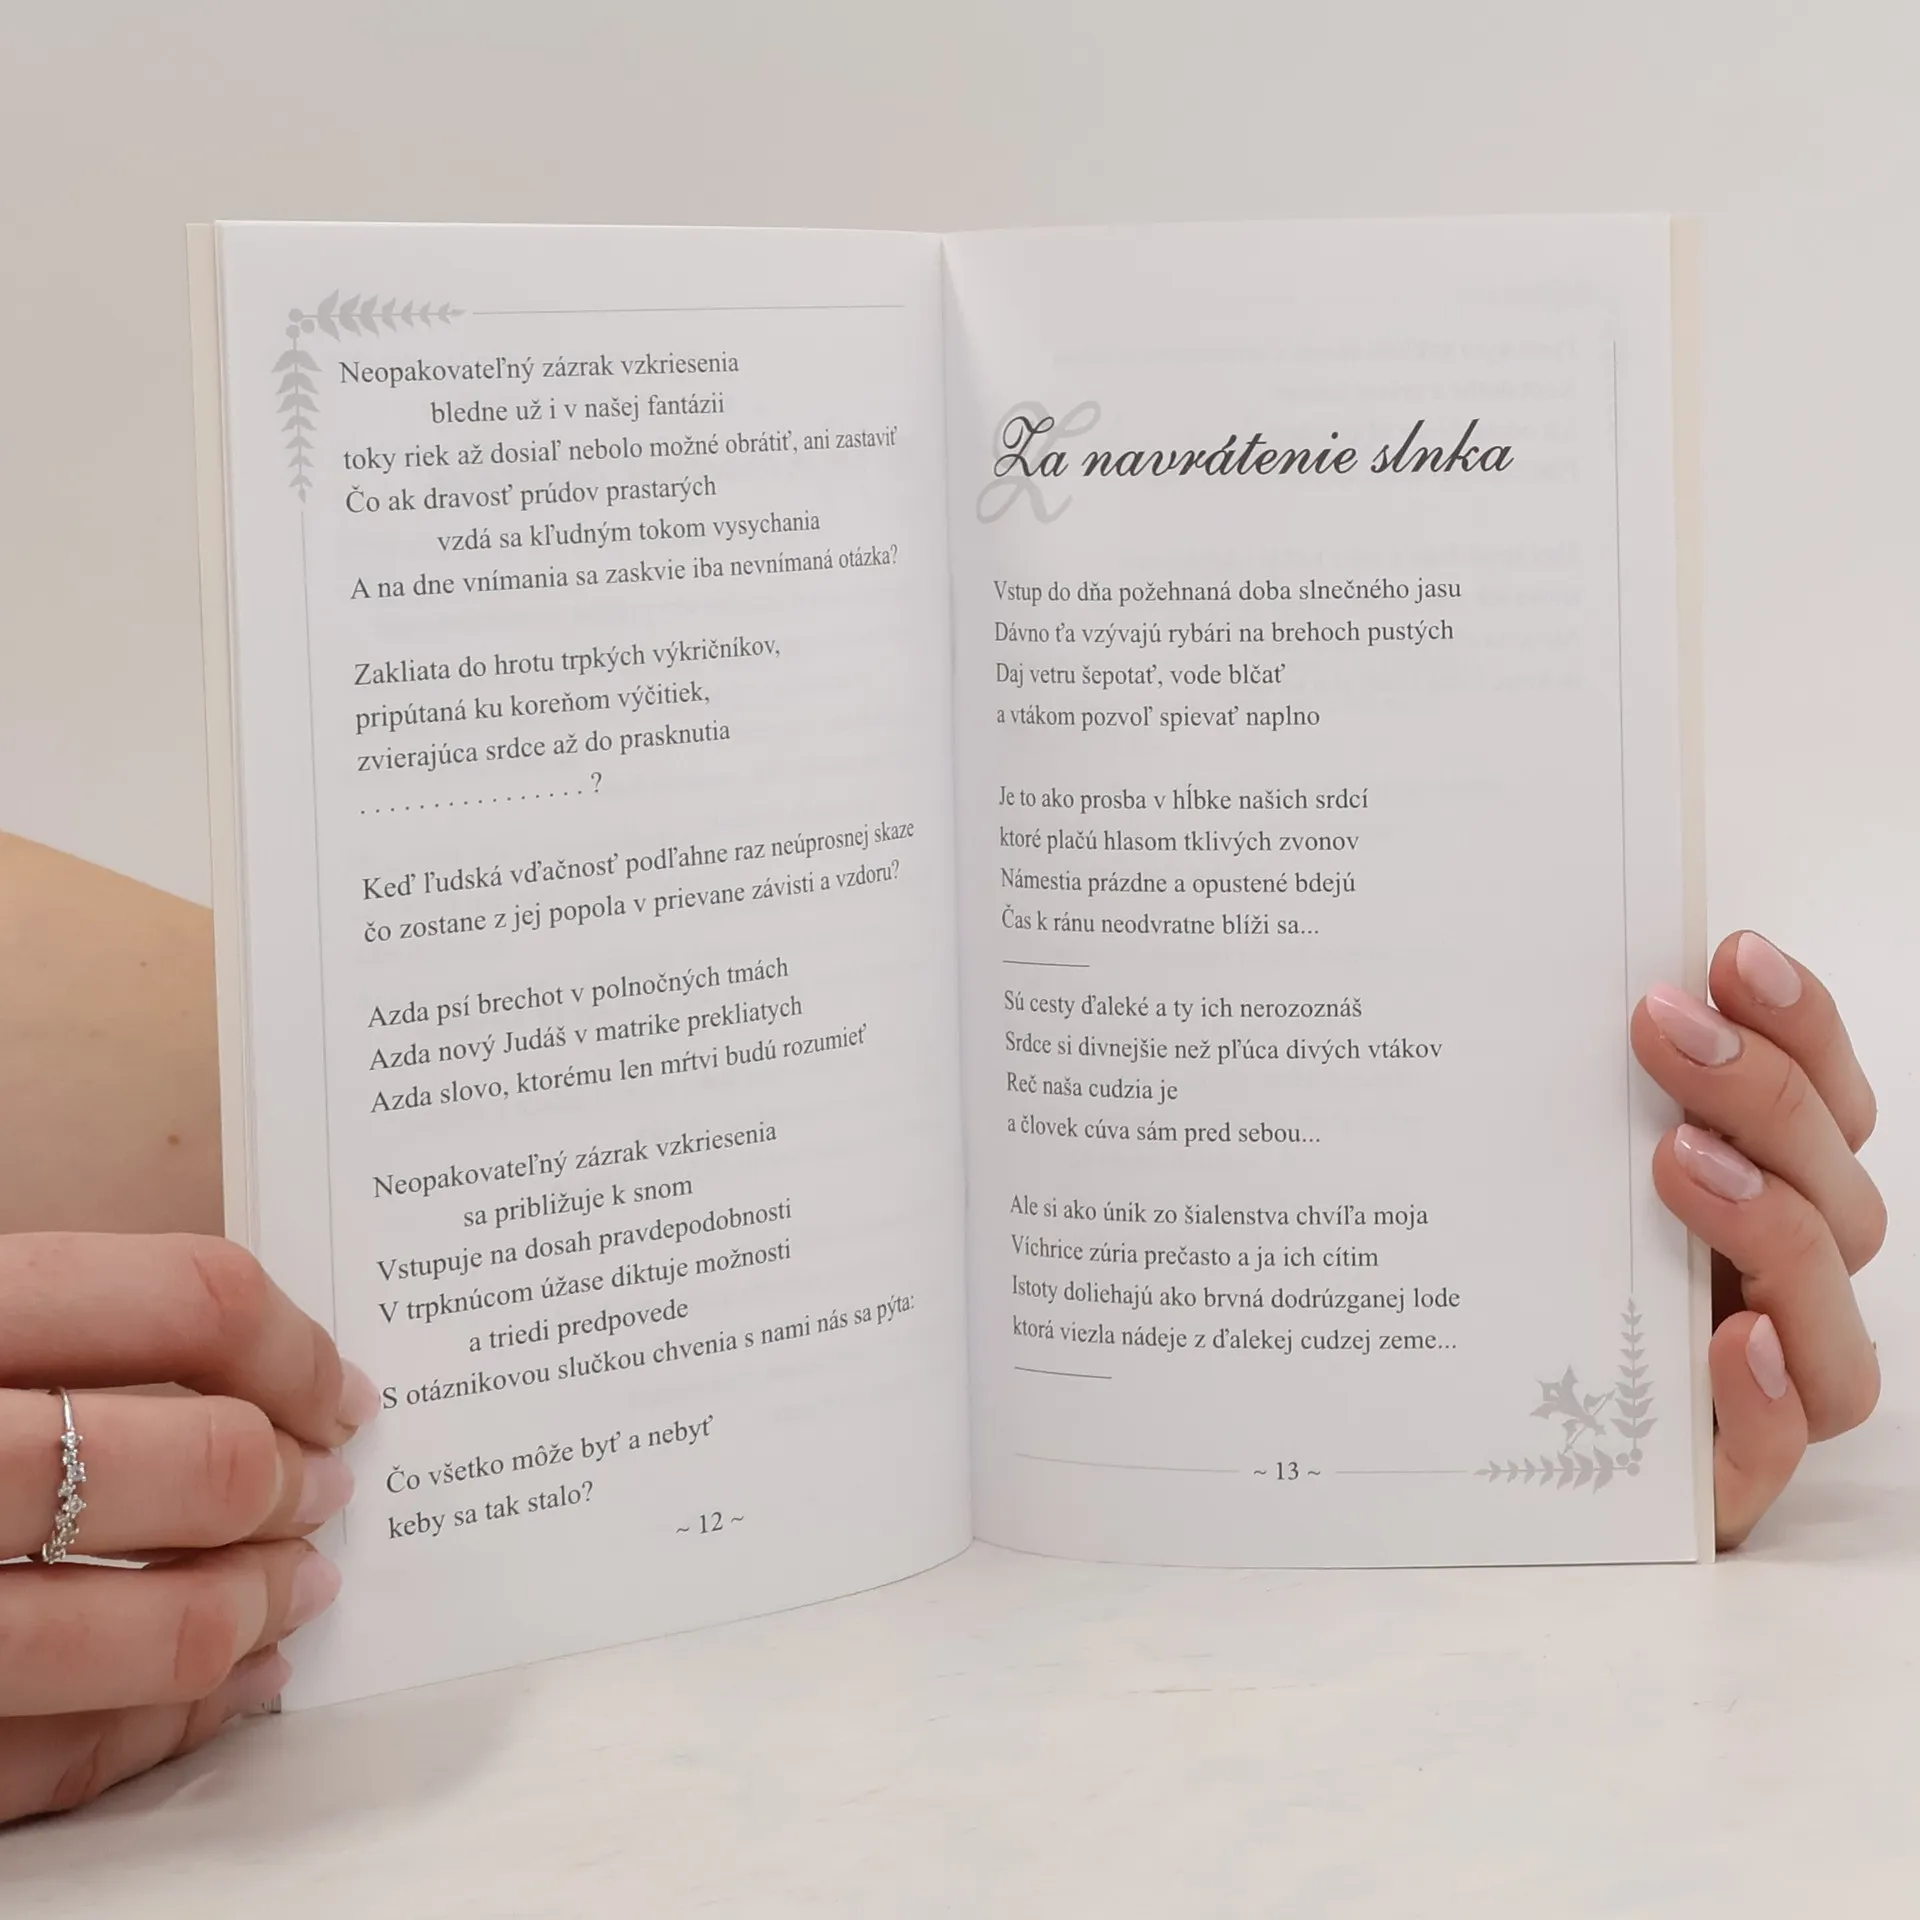 Neopakovateľný zázrak vzkriesenia
bledne už i v našej fantázii
toky riek až dosiaľ nebolo možné obrátiť, ani zastaviť
Čo ak dravosť prúdov prastarých
vzdá sa kľudným tokom vysychania
A na dne vnímania sa zaskvie iba nevnímaná otázka?
Zakliata do hrotu trpkých výkričníkov,
pripútaná ku koreňom výčitiek,
zvierajúca srdce až do prasknutia
. . . . . . . . . . . . . . . . ?
Keď ľudská vďačnosť podľahne raz neúprosnej skaze
čo zostane z jej popola v prievane závisti a vzdoru?
Azda psí brechot v polnočných tmách
Azda nový Judáš v matrike prekliatych
Azda slovo, ktorému len mŕtvi budú rozumieť
Neopakovateľný zázrak vzkriesenia
sa približuje k snom
Vstupuje na dosah pravdepodobnosti
V trpknúcom úžase diktuje možnosti
a triedi predpovede
S otáznikovou slučkou chvenia s nami nás sa pýta:
Čo všetko môže byť a nebyť
keby sa tak stalo?
~ 12 ~
Za navrátenie slnka
Vstup do dňa požehnaná doba slnečného jasu
Dávno ťa vzývajú rybári na brehoch pustých
Daj vetru šepotať, vode blčať
a vtákom pozvoľ spievať naplno
Je to ako prosba v hĺbke našich srdcí
ktoré plačú hlasom tklivých zvonov
Námestia prázdne a opustené bdejú
Čas k ránu neodvratne blíži sa...
Sú cesty ďaleké a ty ich nerozoznáš
Srdce si divnejšie než pľúca divých vtákov
Reč naša cudzia je
a človek cúva sám pred sebou...
Ale si ako únik zo šialenstva chvíľa moja
Víchrice zúria prečasto a ja ich cítim
Istoty doliehajú ako brvná dodrúzganej lode
ktorá viezla nádeje z ďalekej cudzej zeme...
~ 13 ~